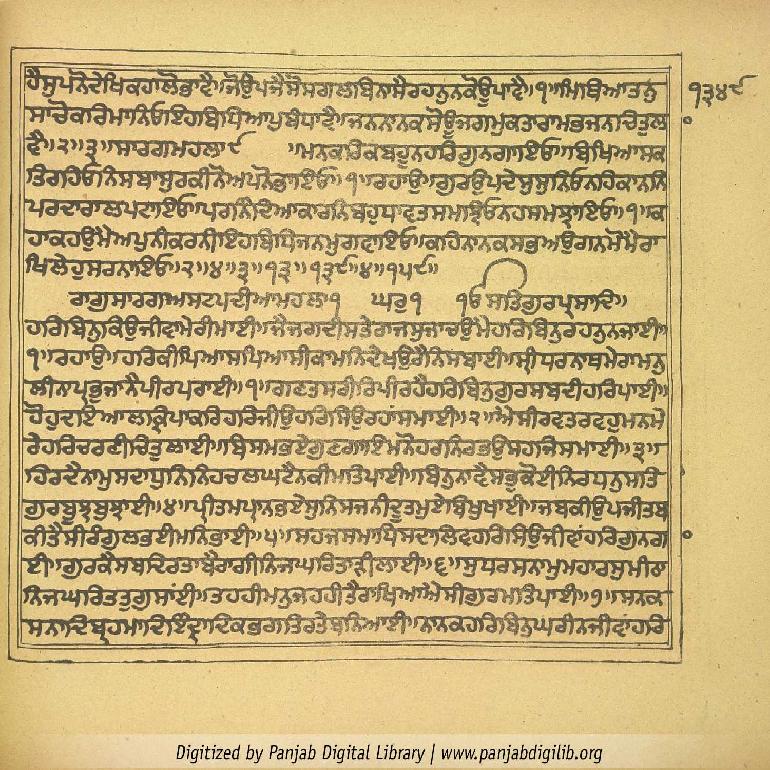 ੧੩੪੯
ਹੈਸੁਪਨੋਦੇਖਿਕਹਾਲੋਭਾਵੈ॥ਜੋਉਪਜੈਸੋਸਗਲਬਿਨਾਸੈਰਹਨੁਨਕੋਊਪਾਵੈ॥੧॥ਮਿਥਿਆਤਨੁ
ਸਾਚੋਕਰਿਮਾਨਿਓਇਹਬਿਧਿਆਪੁਬੰਧਾਵੈ॥ਜਨਨਾਨਕਸੋਊਜਗਮੁਕਤਾਰਾਮਭਜਨਚਿਤੁਲਾ
ਵੈ॥੨॥੩॥ਸਾਰਗਮਹਲਾ੯ ॥ਮਨਕਰਿਕਬਹੂਨਹਰਿਗੁਨਗਾਇਓ॥ਬਿਖਿਆਸਕ
ਤਿਰਹਿਓਨਿਸਬਾਸੁਰਕੀਨੋਅਪਨੋਭਾਇਓ॥੧॥ਰਹਾਉ॥ਗੁਰਉਪਦੇਸੁਸੁਨਿਓਨਹਿਕਾਨਨਿ
ਪਰਦਾਰਾਲਪਟਾਇਓ॥ਪਰਨਿੰਦਿਆਕਾਰਨਿਬਹੁਧਾਵਤਸਮਝਿਓਨਹਸਮਝਾਇਓ॥੧॥ਕ
ਹਾਕਹਉਮੈਅਪੁਨੀਕਰਨੀਇਹਬਿਧਿਜਨਮੁਗਵਾਇਓ॥ਕਹਿਨਾਨਕਸਭਅਉਗਨਮੋਮੈਰਾ
ਖਿਲੇਹੁਸਰਨਾਇਓ॥੨॥੪॥੩॥੧੩॥੧੩੯॥੪॥੧੫੯॥
ਰਾਗੁਸਾਰਗਅਸਟਪਦੀਆਮਹਲਾ੧ ਘਰੁ੧ ੴਸਤਿਗੁਰਪ੍ਰਸਾਦਿ॥
ਹਰਿਬਿਨੁਕਿਉਜੀਵਾਮੇਰੀਮਾਈ॥ਜੈਜਗਦੀਸਤੇਰਾਜਸੁਜਾਚਉਮੈਹਰਿਬਿਨੁਰਹਨੁਨਜਾਈ॥
੧॥ਰਹਾਉ॥ਹਰਿਕੀਪਿਆਸਪਿਆਸੀਕਾਮਨਿਦੇਖਉਰੈਨਿਸਬਾਈ॥ਸ੍ਰੀਧਰਨਾਥਮੇਰਾਮਨੁ
ਲੀਨਾਪ੍ਰਭੁਜਾਨੈਪੀਰਪਰਾਈ॥੧॥ਗਣਤਸਰੀਰਿਪੀਰਹੈਹਰਿਬਿਨੁਗੁਰਸਬਦੀਹਰਿਪਾਈ॥
ਹੋਹੁਦਇਆਲਕ੍ਰਿਪਾਕਰਿਹਰਿਜੀਉਹਰਿਸਿਉਰਹਾਂਸਮਾਈ॥੨॥ਐਸੀਰਵਤਰਵਹੁਮਨਮੇ
ਰੇਹਰਿਚਰਣੀਚਿਤੁਲਾਈ॥ਬਿਸਮਭਏਗੁਣਗਾਇਮਨੋਹਰਨਿਰਭਉਸਹਜਿਸਮਾਈ॥੩॥
ਹਿਰਦੈਨਾਮੁਸਦਾਧੁਨਿਨਿਹਚਲਘਟੈਨਕੀਮਤਿਪਾਈ॥ਬਿਨੁਨਾਵੈਸਭੁਕੋਈਨਿਰਧਨੁਸਤਿ
ਗੁਰਬੂਝਬੁਝਾਈ॥੪॥ਪ੍ਰੀਤਮਪ੍ਰਾਨਭਏਸੁਨਿਸਜਨੀਦੂਤਮੁਏਬਿਖੁਖਾਈ॥ਜਬਕੀਉਪਜੀਤਬ
ਕੀਤੈਸੀਰੰਗੁਲਭਈਮਨਿਭਾਈ॥੫॥ਸਹਜਸਮਾਧਿਸਦਾਲਿਵਹਰਿਸਿਉਜੀਵਾਂਹਰਿਗੁਨਗਾ
ਈ॥ਗੁਰਕੈਸਬਦਿਰਤਾਬੈਰਾਗੀਨਿਜਘਰਿਤਾੜੀਲਾਈ॥੬॥ਸੁਧਰਸਨਾਮੁਮਹਾਰਸੁਮੀਠਾ
ਨਿਜਘਰਿਤਤੁਗੁਸਾਂਈ॥ਤਹਹੀਮਨੁਜਹਹੀਤੈਰਾਖਿਆਐਸੀਗੁਰਮਤਿਪਾਈ॥੭॥ਸਨਕ
ਸਨਾਦਿਬ੍ਰਹਮਾਦਿਇੰਦ੍ਰਾਦਿਕਭਗਤਿਰਤੇਬਨਿਆਈ॥ਨਾਨਕਹਰਿਬਿਨੁਘਰੀਨਜੀਵਾਂਹਰਿ
Digitized by Panjab Digital Library | www.panjabdigilib.org